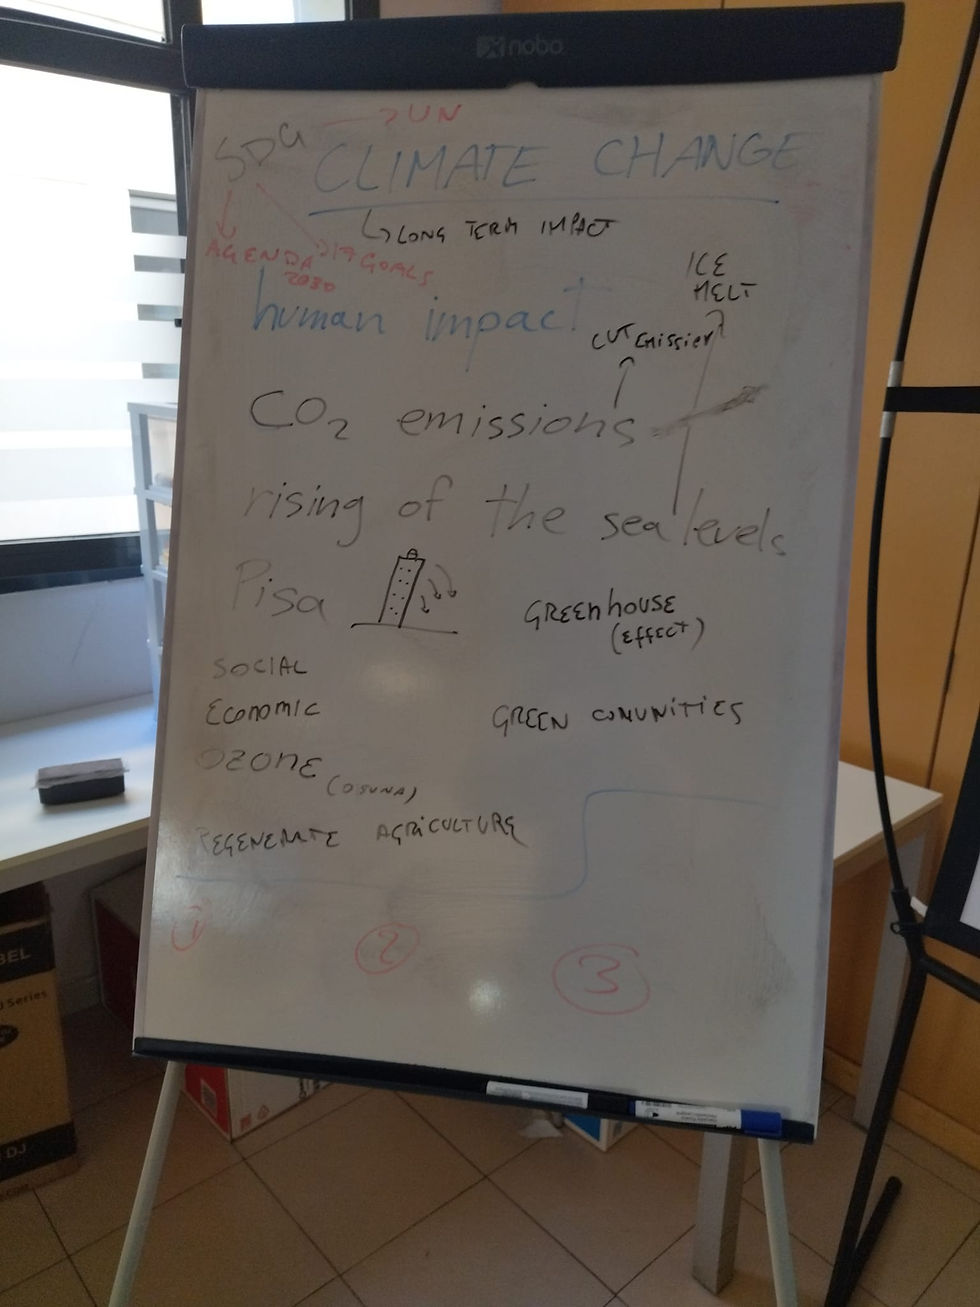 nobo
SDG → UN
CLIMATE CHANGE
↳ LONG TERM IMPACT
AGENDA 2030
17 GOALS
ICE
MELT
human impact
CUT Emissier
CO₂ emissions
rising of the sea levels
Pisa
GREENHOUSE
(EFFECT)
SOCIAL
Economic
GREEN COMUNITIES
OZONE
(OSUNA)
REGENERATE AGRICULTURE
1
2
3
BEL
Series
DJ